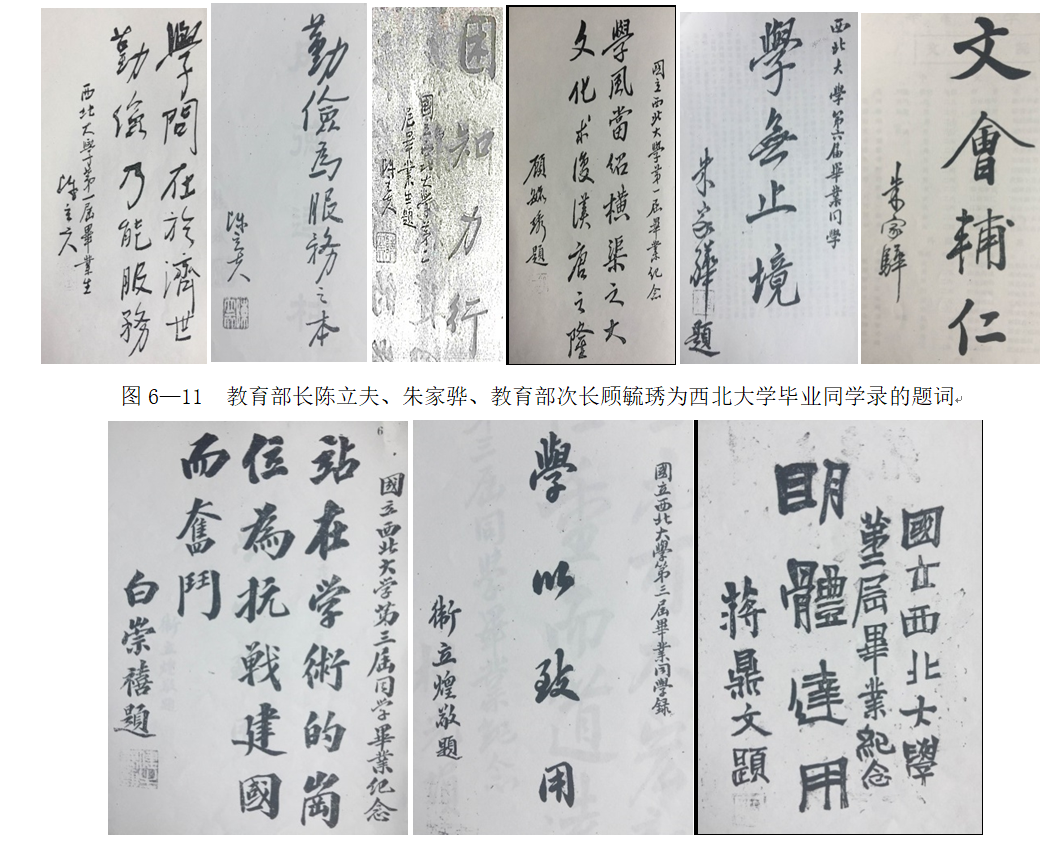 學問在於濟世
勤儉乃能服務
西北大學第一届畢業生
陳立夫
勤儉為服務之本
陳立夫
困知力行
國立西北大學第二
屆畢業生題
陳立夫
國立西北大學第一屆畢業紀念
學風當紹橫渠之大
文化求復漢唐之隆
顧毓琇題
西北大學第六届畢業同學
學無止境
朱家驊題
文會輔仁
朱家驊
图 6—11 教育部长陈立夫、朱家骅、教育部次长顾毓琇为西北大学毕业同学录的题词
6
國立西北大学第三屆同学畢業纪念
站在学術的崗
位為抗戰建國
而奮鬥
白崇禧題
國立西北大學第三屆畢業同學録
學以致用
衛立煌敬題
國立西北大學
第二屆畢業紀念
明體達用
蔣鼎文題